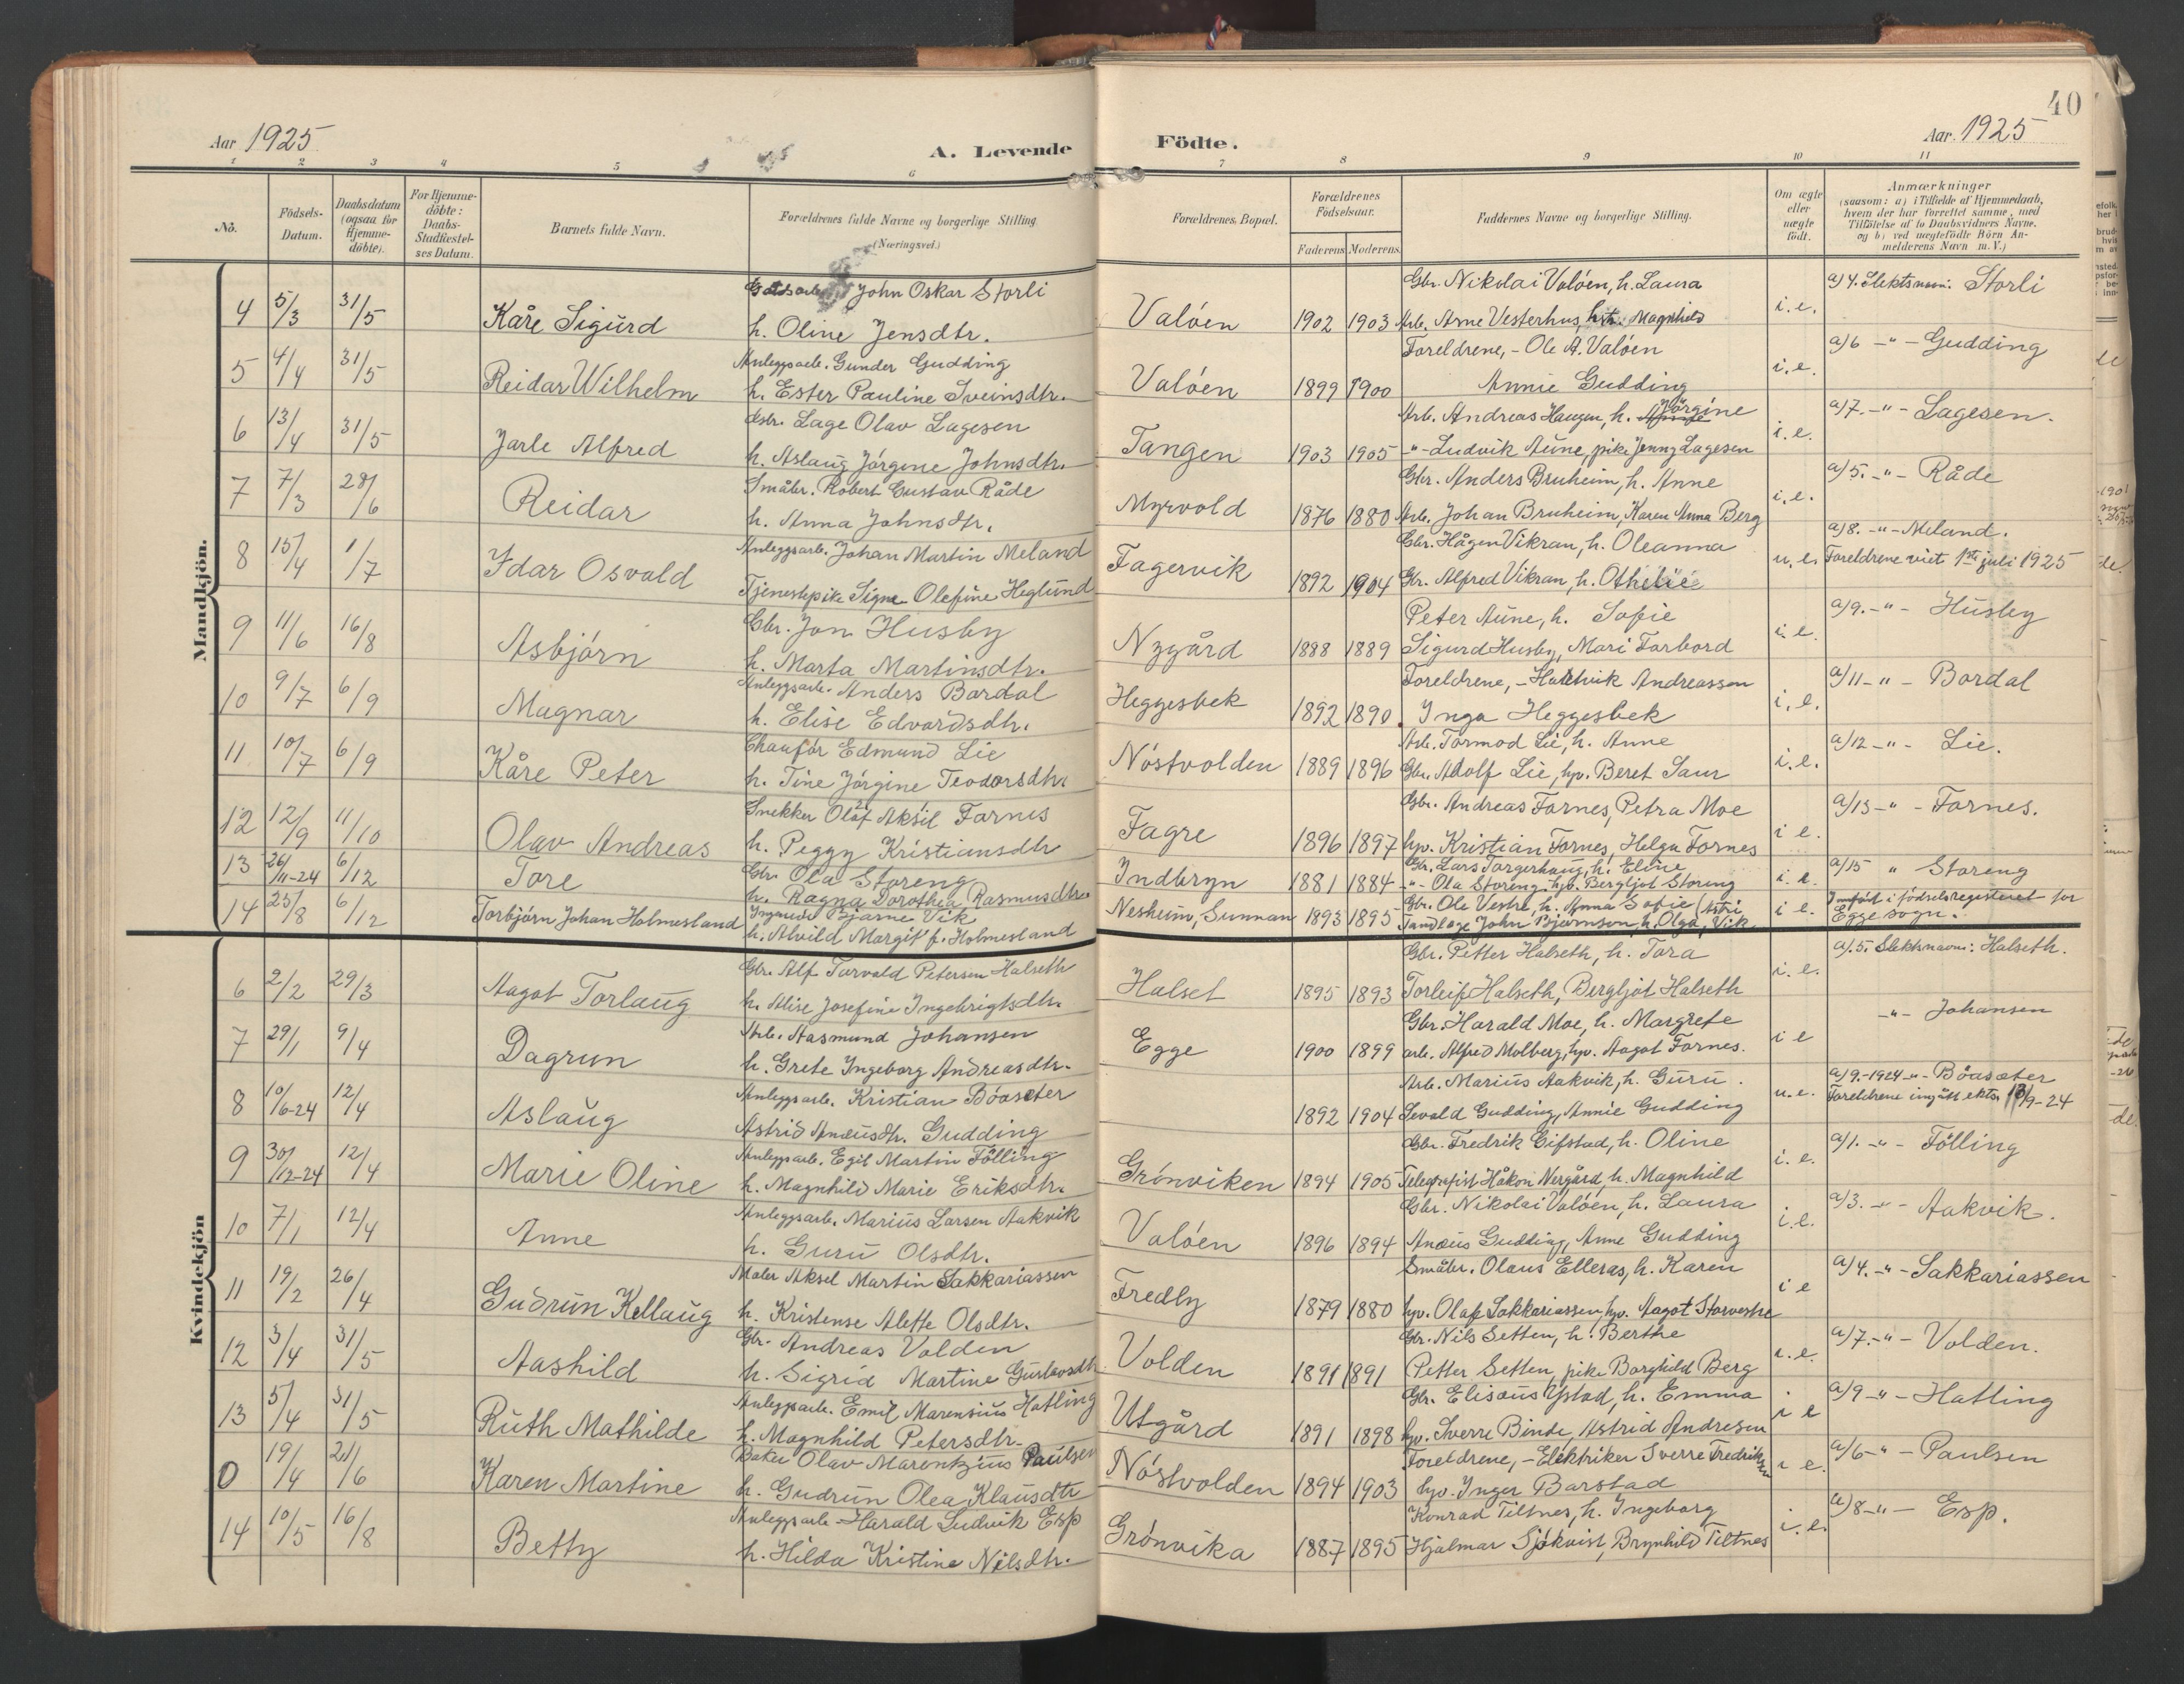 40
Aar 1925
A. Levende
Födte.
Aar. 1925
1 2 3 4 5 6 7 8 9 10 11
No.
Födsels-Datum.
Daabsdatum (ogsaa for Hjemme-döbte).
For Hjemme-döbte: Daabs-Stadfæstel-ses Datum.
Barnets fulde Navn.
Forældrenes fulde Navne og borgerlige Stilling. (Næringsvei.)
Forældrenes, Bopæl.
Forældrenes Födselsaar.
Faderens Moderens
Faddernes Navne og borgerlige Stilling.
Om ægte eller uægte födt.
Anmærkninger
(saasom: a) i Tilfælde af Hjemmedaab,
hvem der har forrettet samme, med
Tilföielse af to Daabsvidners Navne.
og b) ved uægtefödte Börn An-
melderens Navn m. V.)
Mandkjön.
John Oskar Storli
Gbr. Nikolai Valöen, h. Laura
a) 4. Slektsnavn: Storli
4 5/3 31/5 Kåre Sigurd h. Oline Jensdtr. Valöen 1902 1903 Arb. Arne Vesterhus, Magnhild i.e.
Anleggsarb. Gunder Gudding
Foreldrene, - Ole A. Valöen
a) 6 -"- Gudding
5 4/4 31/5 Reidar Wilhelm h. Ester Pauline Sveinsdtr. Valöen 1899 1900 Annie Gudding i.e.
Gbr. Lage Olav Lagesen
Arb. Andreas Haugen, h. Jörgine
a) 7. -"- Lagesen.
6 13/4 31/5 Jarle Alfred h. Aslaug Jörgine Johnsdtr. Tangen 1903 1905 -"- Ludvik Aune, pike Jenny Lagesen i.e.
Småbr. Robert Gustav Råde
Gbr. Anders Bruheim, h. Anne
a) 5. -"- Råde
7 7/3 28/6 Reidar h. Anna Johnsdtr. Myrvold 1876 1880 Arb. Johan Bruheim, Karen Anna Berg i.e.
Anleggsarb. Johan Martin Meland
Gbr. Hågen Vikran, h. Oleanna
a) 8. -"- Meland.
Foreldrene viet 1ste juli 1925
8 15/4 1/7 Idar Osvald Tjenestepike Signe Olefine Heglund Fagervik 1892 1904 Gbr. Alfred Vikran, h. Othelie u.e.
Gbr. Jon Husby
Peter Aune, h. Sofie
a) 9. -"- Husby
9 11/6 16/8 Asbjörn h. Marta Martinsdtr. Nygård 1888 1889 Sigurd Husby, Mari Forbord i.e.
Anleggsarb. Anders Bardal
Foreldrene, - Hartvik Andreassen
a) 11 -"- Bardal
10 9/7 6/9 Magnar h. Elise Edvardsdtr. Heggesbek 1892 1890 Inga Heggesbek i.e.
Chauför Edmund Lie
Arb. Tormod Lie, h. Anne
a) 12 -"- Lie.
11 10/7 6/9 Kåre Peter h. Tine Jörgine Teodorsdtr. Nöstvolden 1889 1896 Gbr. Adolf Lie, hp. Beret Saur i.e.
Snekker Olaf Aksil Fornes
Gbr. Andreas Fornes, Petra Moe
a) 13 -"- Fornes.
12 12/9 11/10 Olav Andreas h. Peggy Kristiansdtr Fagre 1896 1897 hp. Kristian Fornes, Helga Fornes i e.
Gbr. Ola Storeng
Gbr. Lars Torgerhaug, h. Eline
a) 15 " Storeng
13 26/11-24 6/12 Tore h. Ragna Dorothea Rasmusdtr. Indbryn 1881 1884 -"- Ola Storeng, hp. Bergljot Storeng i.e.
Bjarne Vik
Gbr. Ole Vestre, h. Anna Sofie (Astri
Innfört i födselsregisteret for
14 25/8 6/12 Torbjörn Johan Holmesland h. Alvild Margit f. Holmesland Nesheim, Sunnan 1893 1895 Tandlæge John Bjørnson, h. Olga, Vik i e. Egge sogn.
Kvindekjön
Gbr. Alf Torvald Petersen Halseth
Gbr. Petter Halseth, h. Tora
a) 5. Slektsnavn: Halseth.
6 2/2 29/3 Aagot Torlaug h. Alise Josefine Ingebrigtsdtr. Halset 1895 1893 Torleif Halseth, Bergljot Halseth i.e.
Arb. Aasmund Johansen
Gbr. Harald Moe, h. Margrete
-"- Johansen
7 29/1 9/4 Dagrun h. Grete Ingeborg Andreasdtr. Egge 1900 1899 arb. Alfred Molberg, hp. Aagot Fornes. i e
Anleggsarb. Kristian Böasæter
Arb. Marius Aakvik, h. Guru.
a) 9.-1924 -"- Böasæter
Foreldrene inngått ekts. 13/9-24
8 10/6-24 12/4 Aslaug Astrid Anæusdtr. Gudding 1892 1904 Sevald Gudding, Annie Gudding u.e.
Anleggsarb. Egil Martin Fölling
Gbr. Fredrik Gifstad, h. Oline
a) 1. -"- Fölling
9 30/12-24 12/4 Marie Oline h. Magnhild Marie Eriksdtr. Grönviken 1894 1905 Telegrafist Håkon Nergård, h. Magnhild i.e.
Anleggsarb. Marius Larsen Aakvik
Gbr. Nikolai Valöen, h. Laura
a) 3. -"- Aakvik.
10 7/1 12/4 Anne h. Guru Olsdtr. Valöen 1896 1894 Anæus Gudding, Anne Gudding i.e.
Maler Aksel Martin Sakkariassen
Småbr. Olaus Elleras, h. Karen
a) 4. -"- Sakkariassen
11 19/2 26/4 Gudrun Kellaug h. Kristense Alette Olsdtr. Fredly 1879 1880 hp. Olaf Sakkariassen, hp. Aagot Storvestre i e
Gbr. Andreas Volden
Gbr. Nils Setten, h. Berthe
a) 7. -"- Volden.
12 3/4 31/5 Aashild h. Sigrid Martine Gustavsdtr. Volden 1891 1891 Petter Setten, pike Borghild Berg i.e.
Anleggsarb. Emil Marensius Hatling
Gbr. Elisæus Ystad, h. Emma
a) 9 -"- Hatling
13 5/4 31/5 Ruth Mathilde h. Magnhild Petersdtr. Utgård 1891 1898 hp. Sverre Binde, Astrid Andresen i e
Baker Olav Marentzius Paulsen
Foreldrene, - Elektriker Sverre Fredriksen
a) 6 -"- Paulsen
0 19/4 21/6 Karen Martine h. Gudrun Olea Klausdtr Nöstvolden 1894 1903 hp. Inger Barstad i e.
Anleggsarb. Harald Ludvik Esp
Konrad Tiltnes, h. Ingeborg
a) 8 -"- Esp.
14 10/5 16/8 Betty h. Hilda Kristine Nilsdtr. Grönvika 1887 1895 Hjalmar Sjökvist, Brynhild Tiltnes i.e.